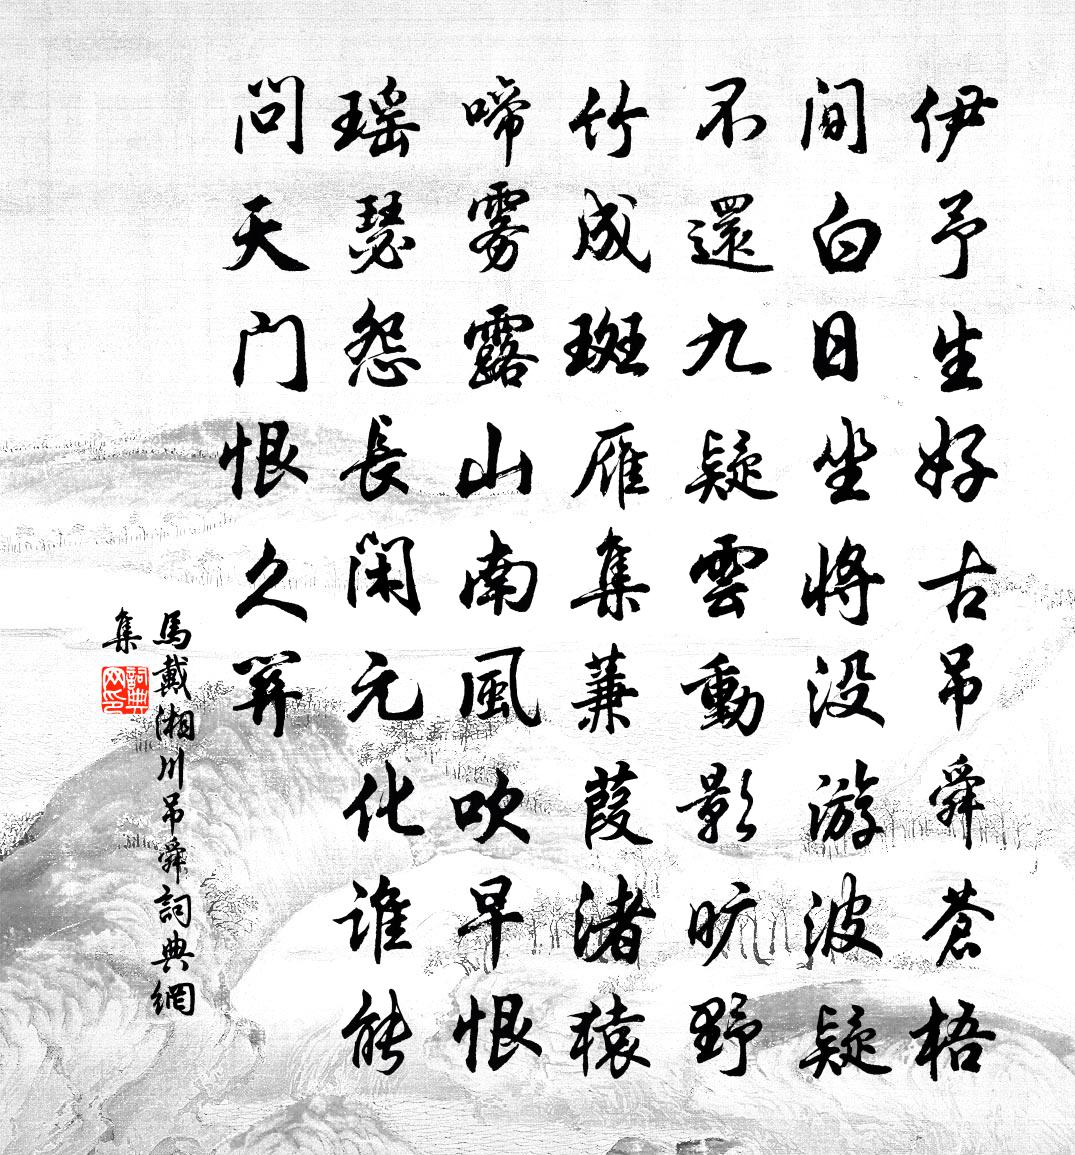 伊予生好古吊舜蒼梧
间白日坐将没游波疑
不還九疑雲動影旷野
竹成斑雁集蒹葭渚猿
啼雾露山南風吹早恨
瑶瑟怨長闲元化谁能
问天门恨久関
馬戴湘川吊舜詞典網
集
詞典网印